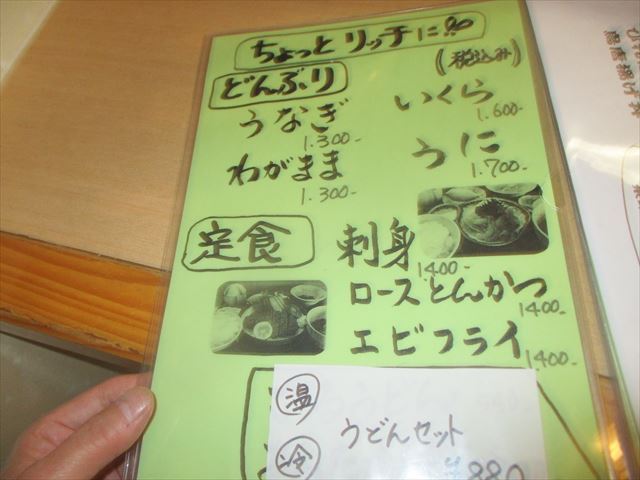 ちょっとリッチに!!
(税込み)
どんぶり
うなぎ
1.300-
いくら
1.600-
わがまま
1.300-
うに
1.700-
定食
刺身
1400-
ロースとんかつ
1400-
エビフライ
1.400-
温
冷
うどんセット
¥880